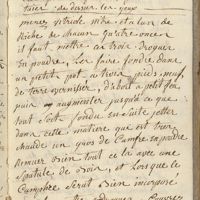 tier de dessus les yeux
prenez vitriole nitre et alun de
Roche de chacun quatre onces
il faut mettre ces trois drogues
en poudre, les faire fondre dans
un petit pot à trois pieds, neuf,
de terre vernissée, d'abord a petit feu
puis augmenter jusqu'à ce que
tout soit fondu ensuite jetter
dans cette matiere qui est tres
chaude un gros de Camfre en poudre
remuer bien tout cela avec une
spatule de bois, et Lorsque le
Camphre sera bien incorporé